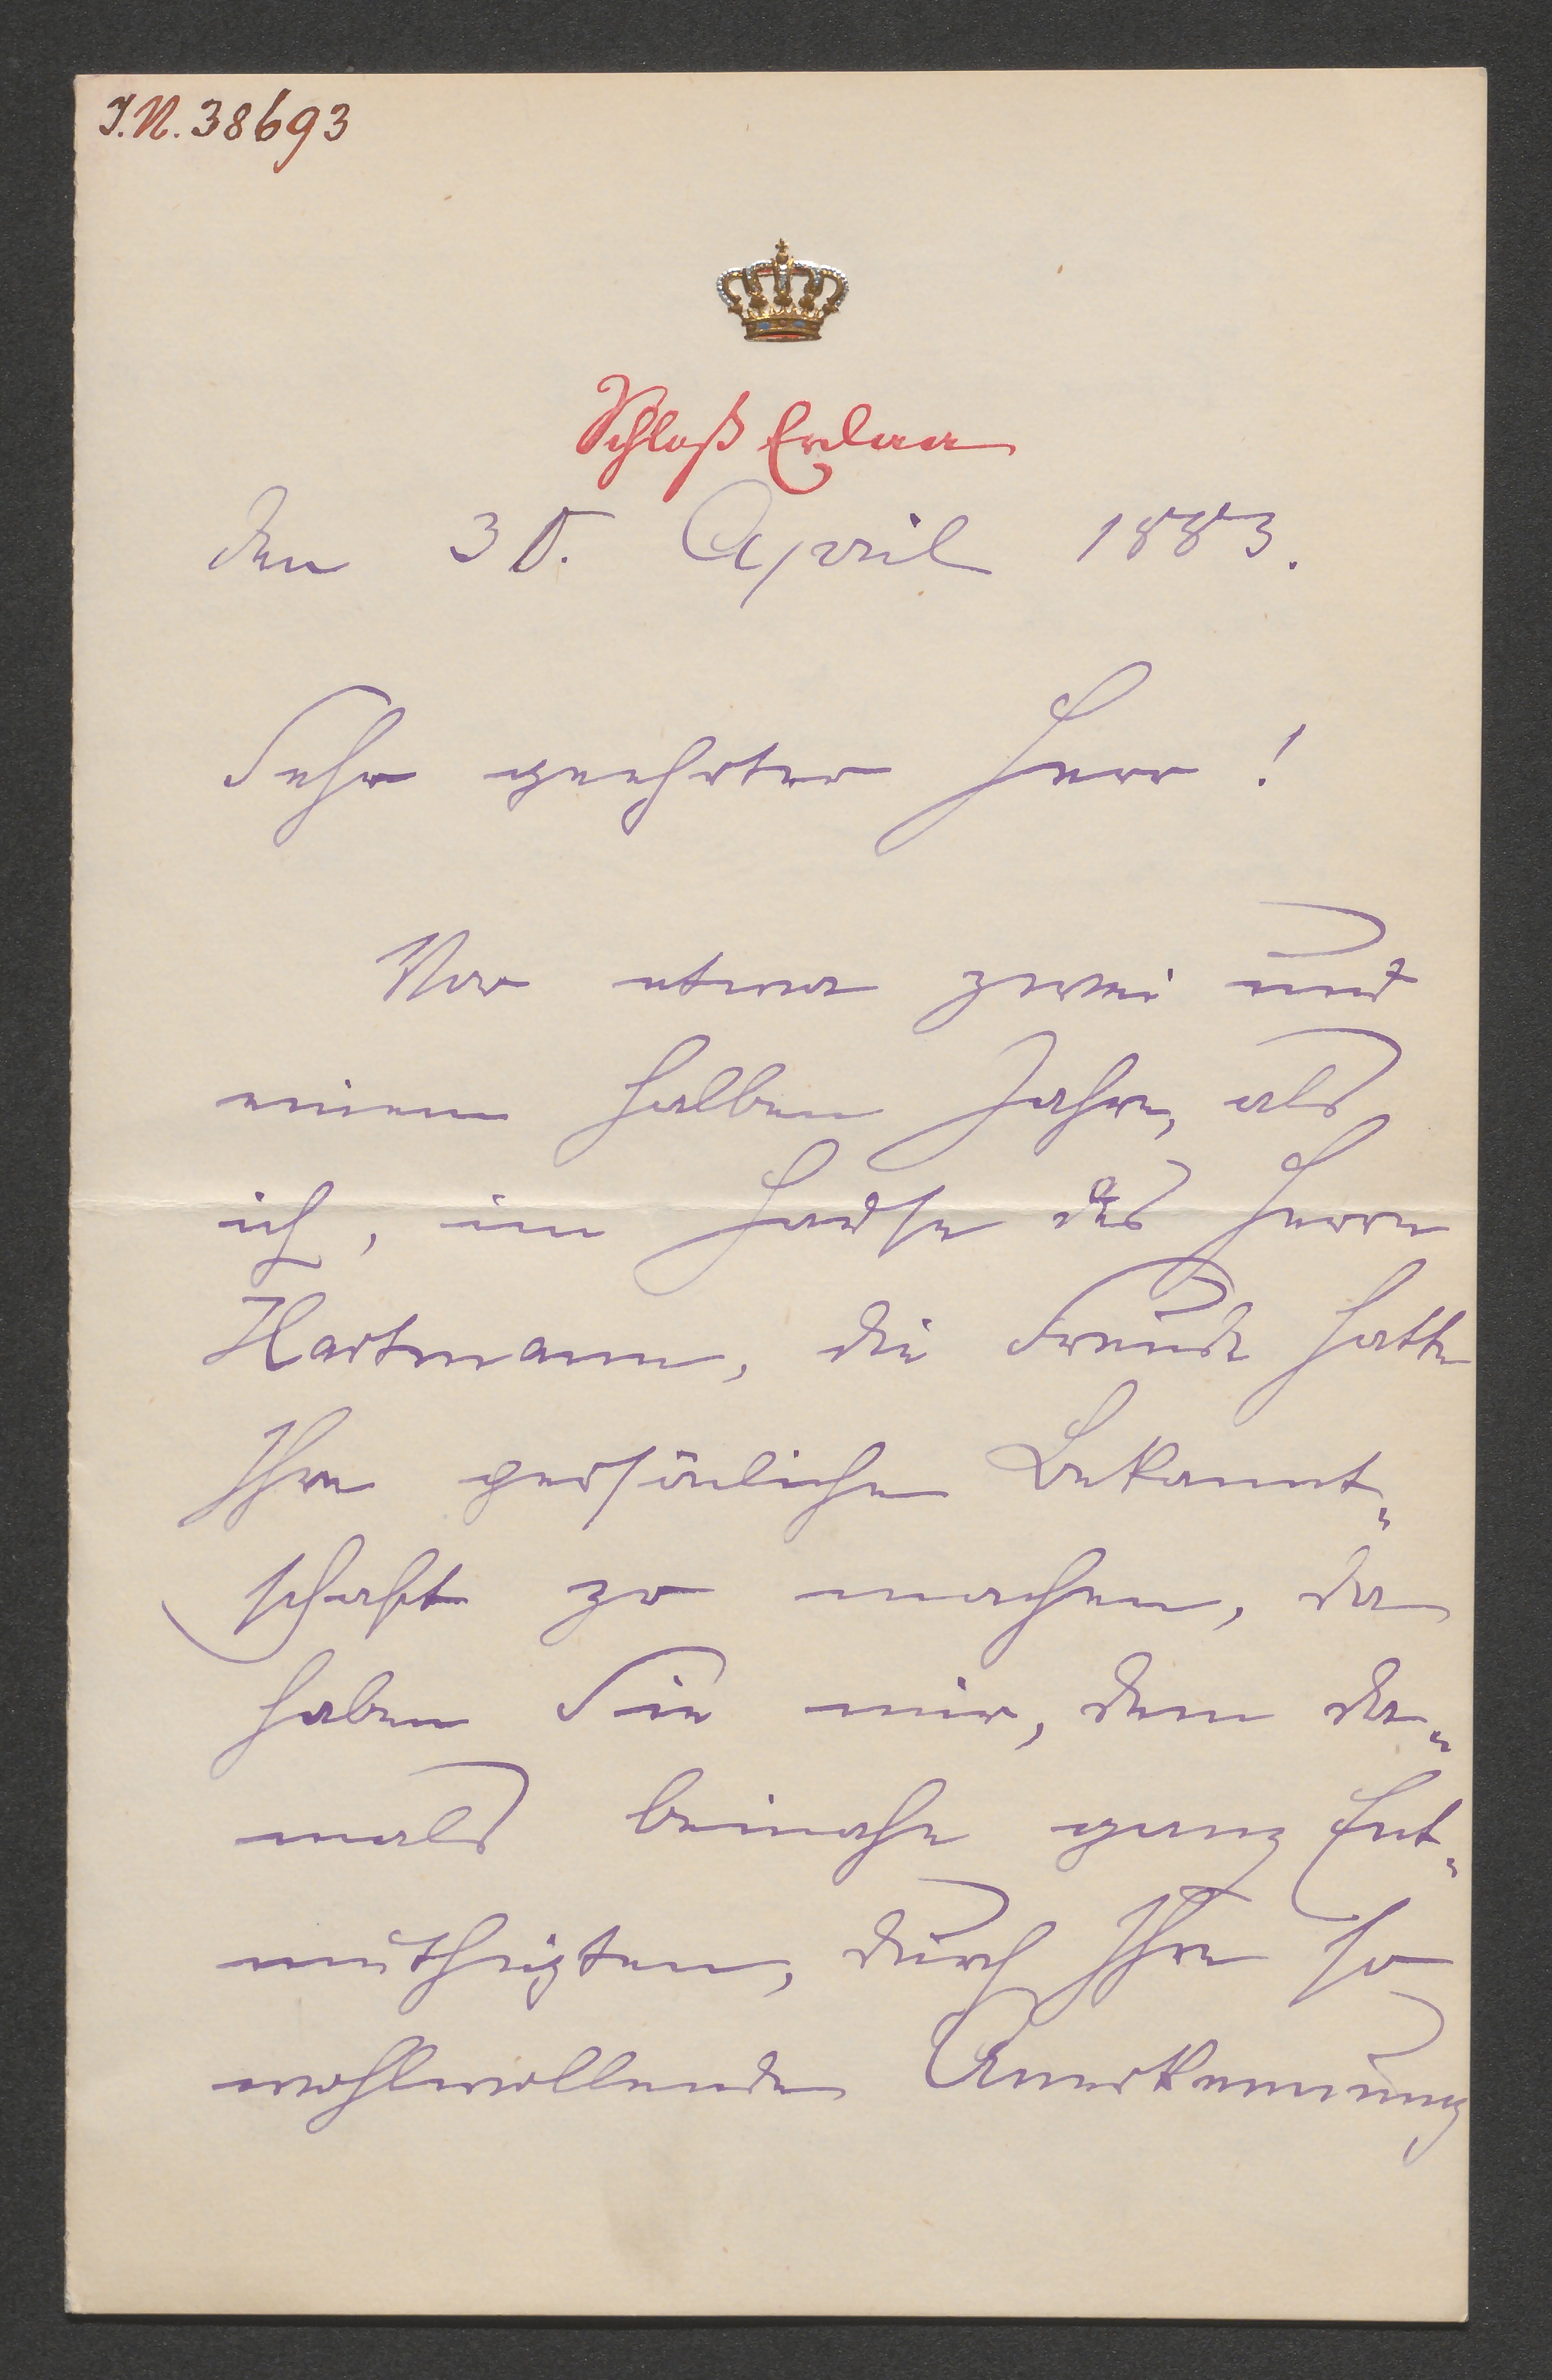 I.N. 38693
Schloß Erlaa
den 30. April 1883.
Sehr geehrter Herr!
Vor etwa zwei und
einem halben Jahre, als
ich, im Hause des Herrn
Hartmann, die Freude hatte
Ihre persönliche Bekannt„
schaft zu machen, da
haben Sie mir, dem da„
mals beinahe ganz Ent„
muthigten, durch Ihre so
wohlwollende Anerkennung